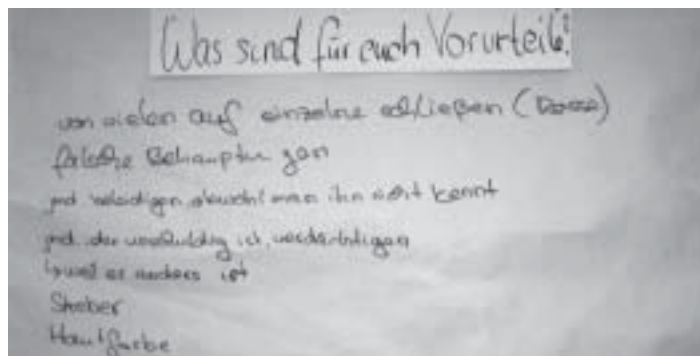 Was sind für euch Vorurteile?
von vielen auf einzelne schließen
falsche Behauptungen
jmd beleidigen obwohl man ihn nicht kennt
jmd. der unschuldig ist, verdächtigen
weil er anders ist
Streber
Hautfarbe